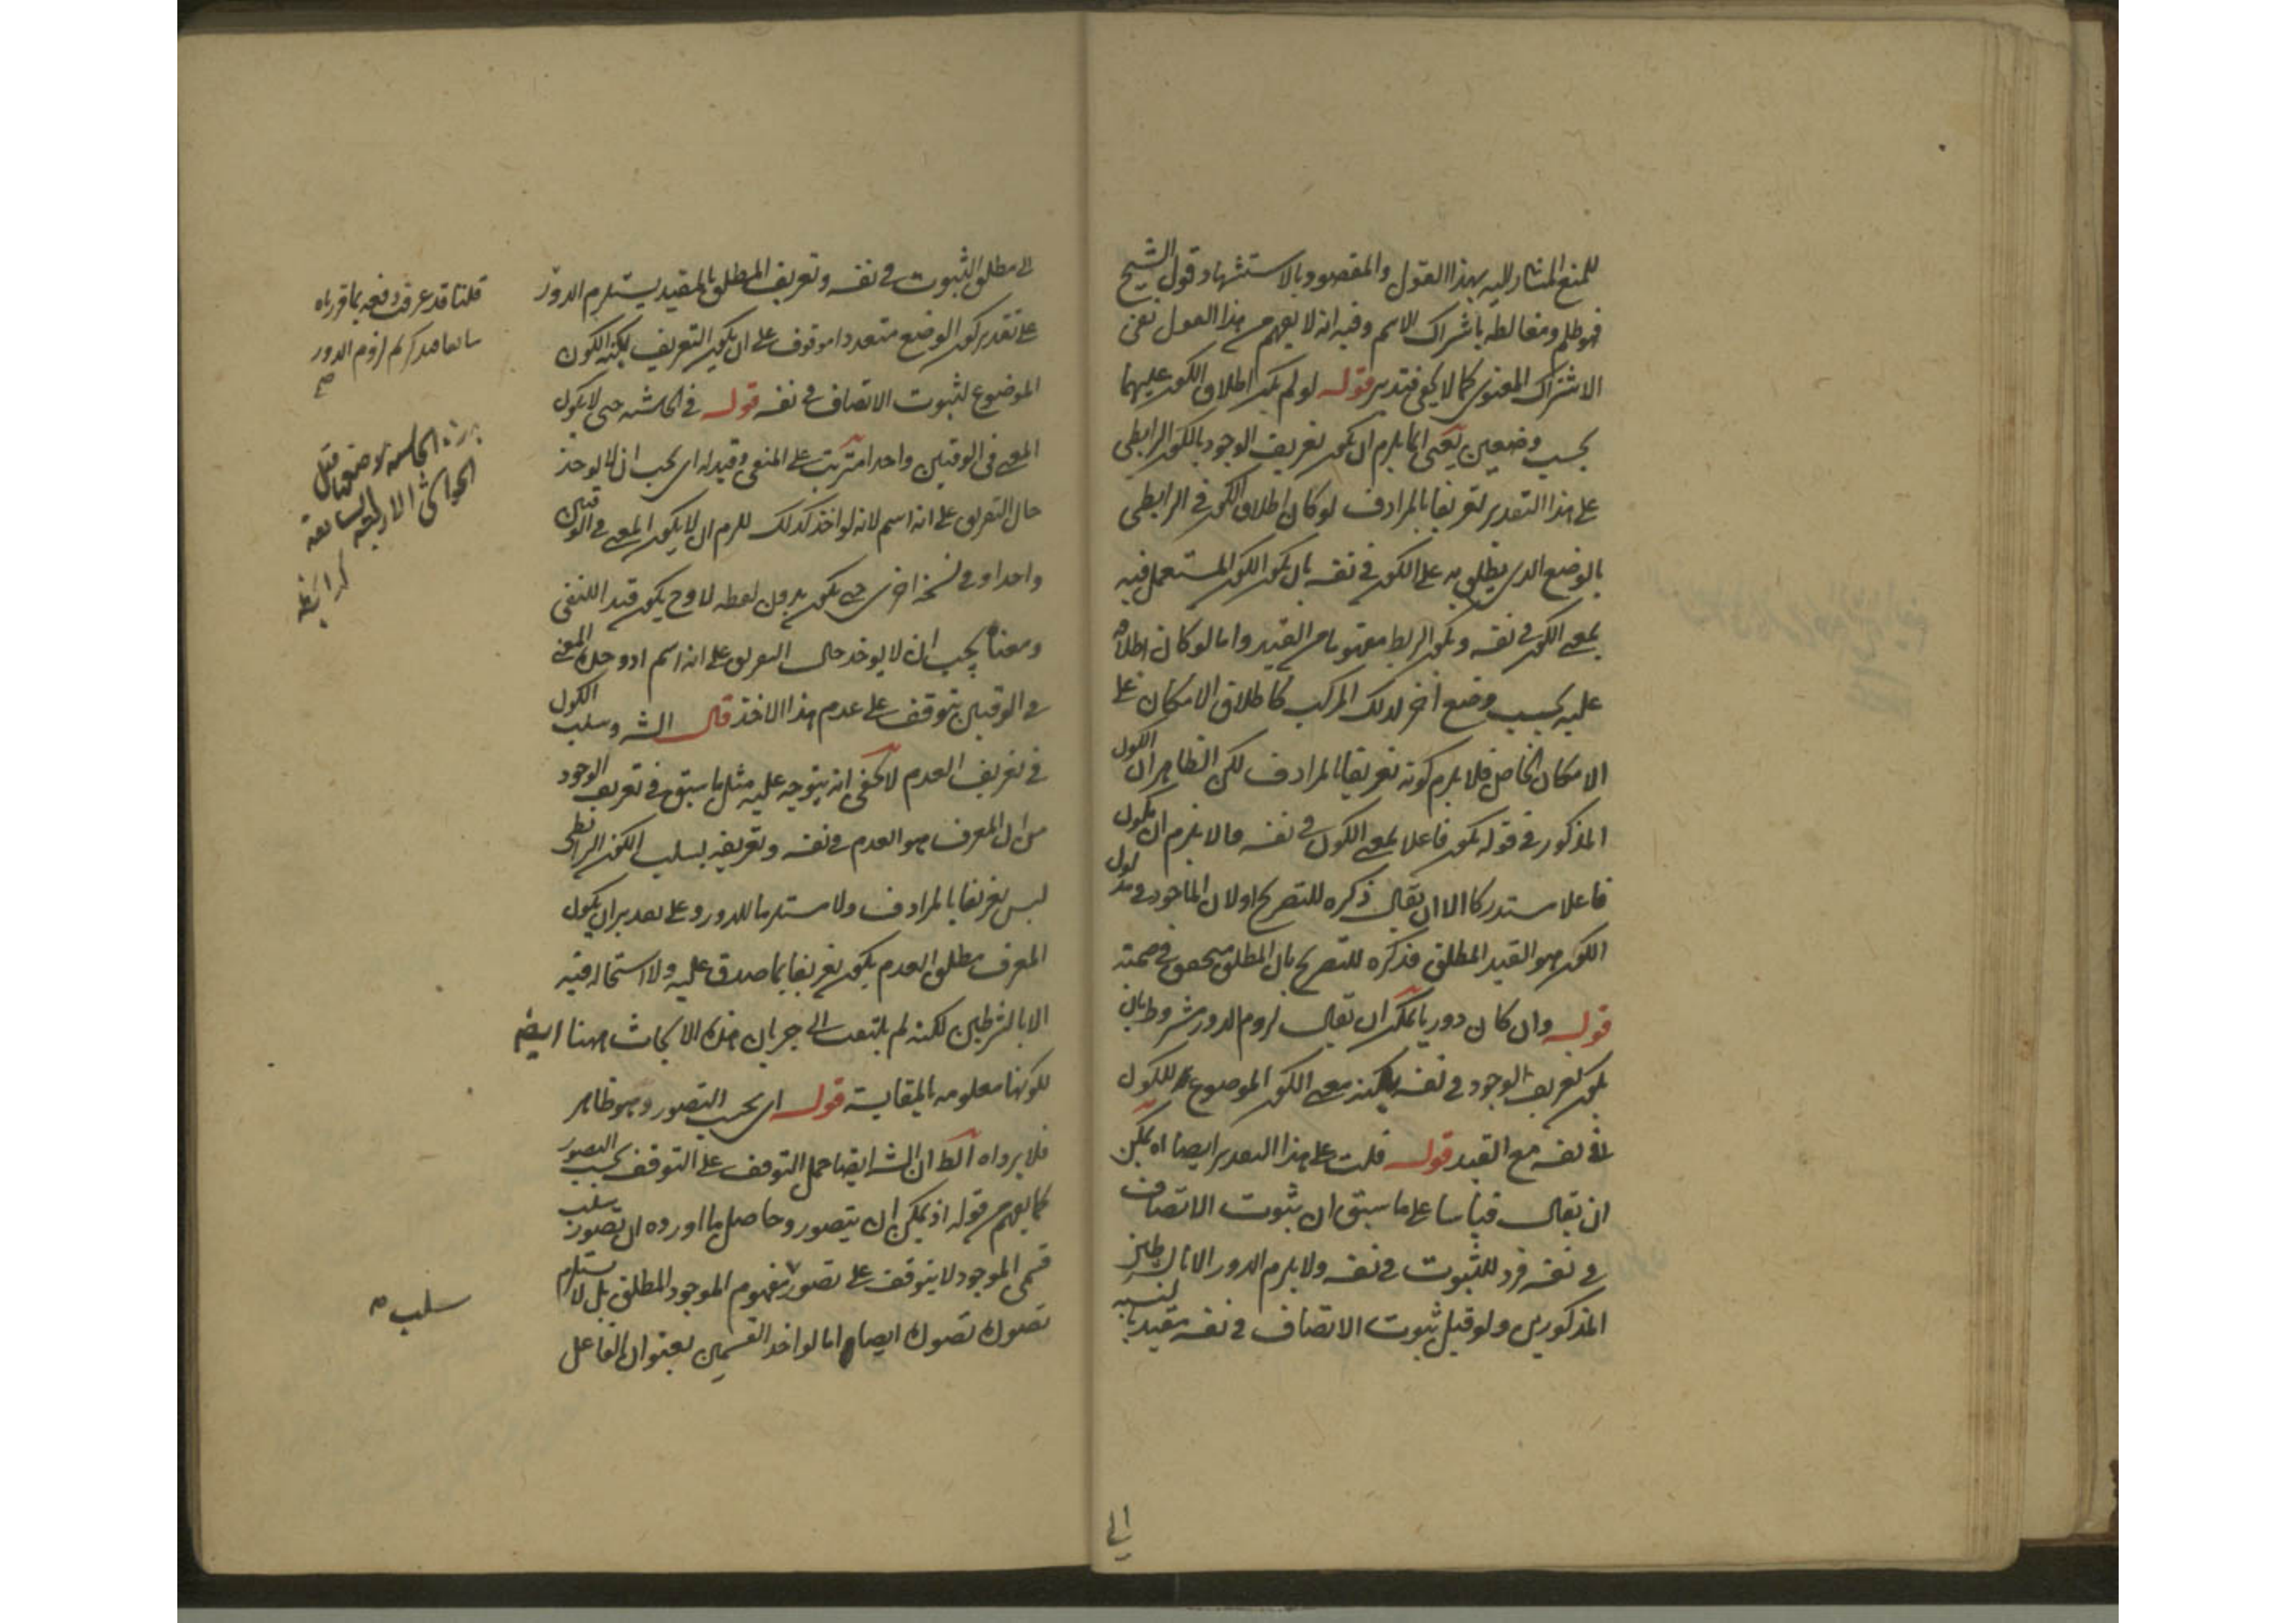 للمنع المشار اليه بهذا القول والمقصود بالاستشهاد قول الشيخ
فهو ظلم ومغالطه باشتراك الاسم وفيه انه لا يفهم من هذا القول نفى
الاشتراك المعنوى كما لا يخفى فتدبر قوله لو لم يكن اطلاق الكون عليهما
بحسب وضعين يعنى انما يلزم ان يكون تعريف الوجود بالكون الرابطى
على هذا التقدير تعريفا بالمرادف لو كان اطلاق الكون فى الرابطى
بالوضع الذى يطلق به على الكون فى نفسه بان يكون الكون المستعمل فيه
بمعنى الكون فى نفسه ويكون الربط مفهوما من القيد واما لو كان اطلاقه
عليه بحسب وضع آخر لذلك المركب كاطلاق الامكان على
الامكان الخاص فلا يلزم كونه تعريفا بالمرادف لكن الظاهر ان الكون
المذكور فى قوله يكون فاعلا بمعنى الكون فى نفسه والا يلزم ان يكون
فاعلا مستدركا الا ان يقال ذكره للتصريح اولان الماخوذ فى مدلول
الكون هو القيد المطلق فذكره للتصريح بان المطلق متحقق فى ضمنه
قوله وان كان دوريا يمكن ان يقال لزوم الدور مشروط بان
يكون تعريف الوجود فى نفسه بكنه معنى الكون الموضوع للكون
فى نفسه مع القيد قوله قلت على هذا التقدير ايضا اه يمكن
ان يقال قياسا على ما سبق ان ثبوت الاتصاف
فى نفسه فرد للثبوت فى نفسه ولا يلزم الدور الا بالشرطين
المذكورين ولو قيل ثبوت الاتصاف فى نفسه مقيد بالنسبه
الى
الى مطلق الثبوت فى نفسه وتعريف المطلق بالمقيد يستلزم الدور
على تقدير كون الوضع متعددا موقوف على ان يكون التعريف بكنه الكون
الموضوع لثبوت الاتصاف فى نفسه قوله فى الحاشيه حتى لا يكون
المعنى فى الوقتين واحدا مترتب على المنفى وقيد له اى يجب ان لا يوخذ
حال التعريف على انه اسم لانه لو اخذ كذلك للزم ان لا يكون المعنى فى الوقتين
واحدا وفى نسخة اخرى حتى يكون بدون لفظه لا وح يكون قيد اللنفى
ومعناه يجب ان لا يوخذ حال التعريف على انه اسم اذ وحدة المعنى
فى الوقتين يتوقف على عدم هذا الاخذ قال الشه وسلب الكون
فى تعريف العدم لا يخفى انه يتوجه عليه مثل ما سبق فى تعريف الوجود
من ان المعرف هو العدم فى نفسه وتعريفه بسلب الكون الرابطى
ليس تعريفا بالمرادف ولا مستلزما للدور وعلى تقدير ان يكون
المعرف مطلق العدم يكون تعريفا بما صدق عليه ولا استحاله فيه
الا بالشرطين لكنه لم يلتفت الى جريان هذه الابحاث ههنا ايضا
لكونها معلومه بالمقايسة قوله اى بحسب التصور وهو ظاهر
فلا يرد اه الظ ان الشه ايضا حمل التوقف على التوقف بحسب التصور
كما يفهم من قوله اذ يمكن ان يتصور وحاصل ما اورده ان تصور سلب
قسمى الموجود لا يتوقف على تصور مفهوم الموجود المطلق بل لا يستلزم
تصوره تصوره ايضا واما لو اخذ القسمين بعنوان الفاعل
قلنا قد عرفت دفعه بما قررناه
سابقا من لزوم الدور
صح
هذه الحاشيه موضعها قبل
الحواشى الاربعة السابقة
سلب صح